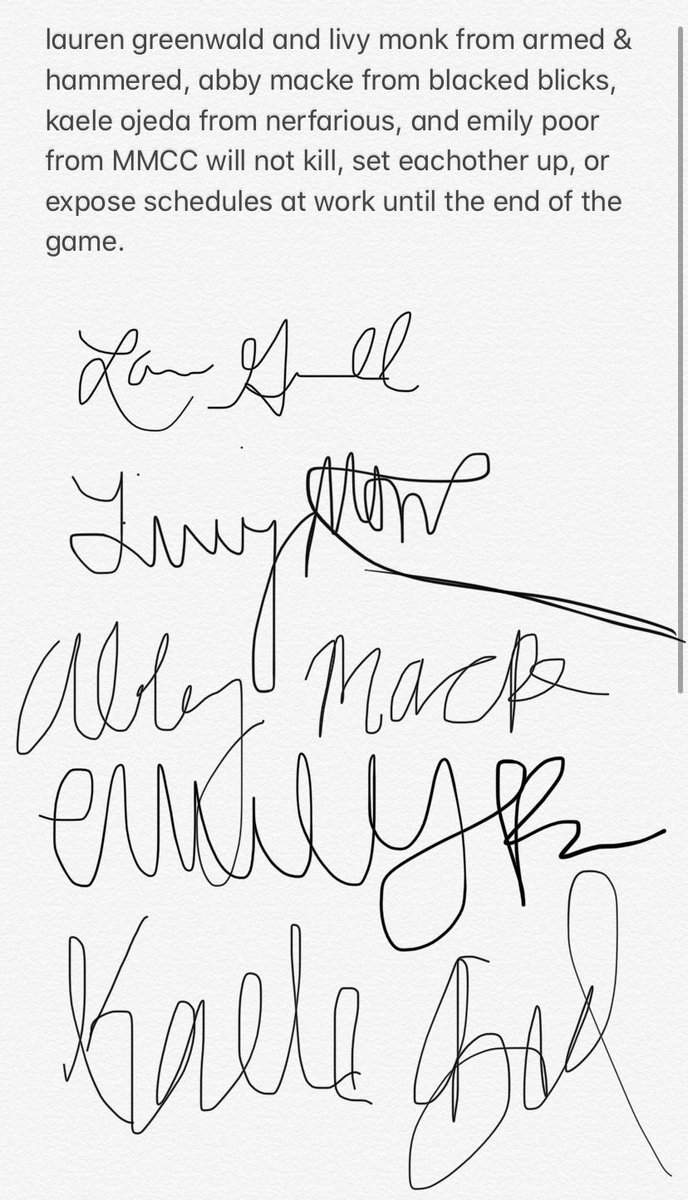 lauren greenwald and livy monk from armed &
hammered, abby macke from blacked blicks,
kaele ojeda from nerfarious, and emily poor
from MMCC will not kill, set eachother up, or
expose schedules at work until the end of the
game.
Livy Mon
Abby Macke
emily
Kaele